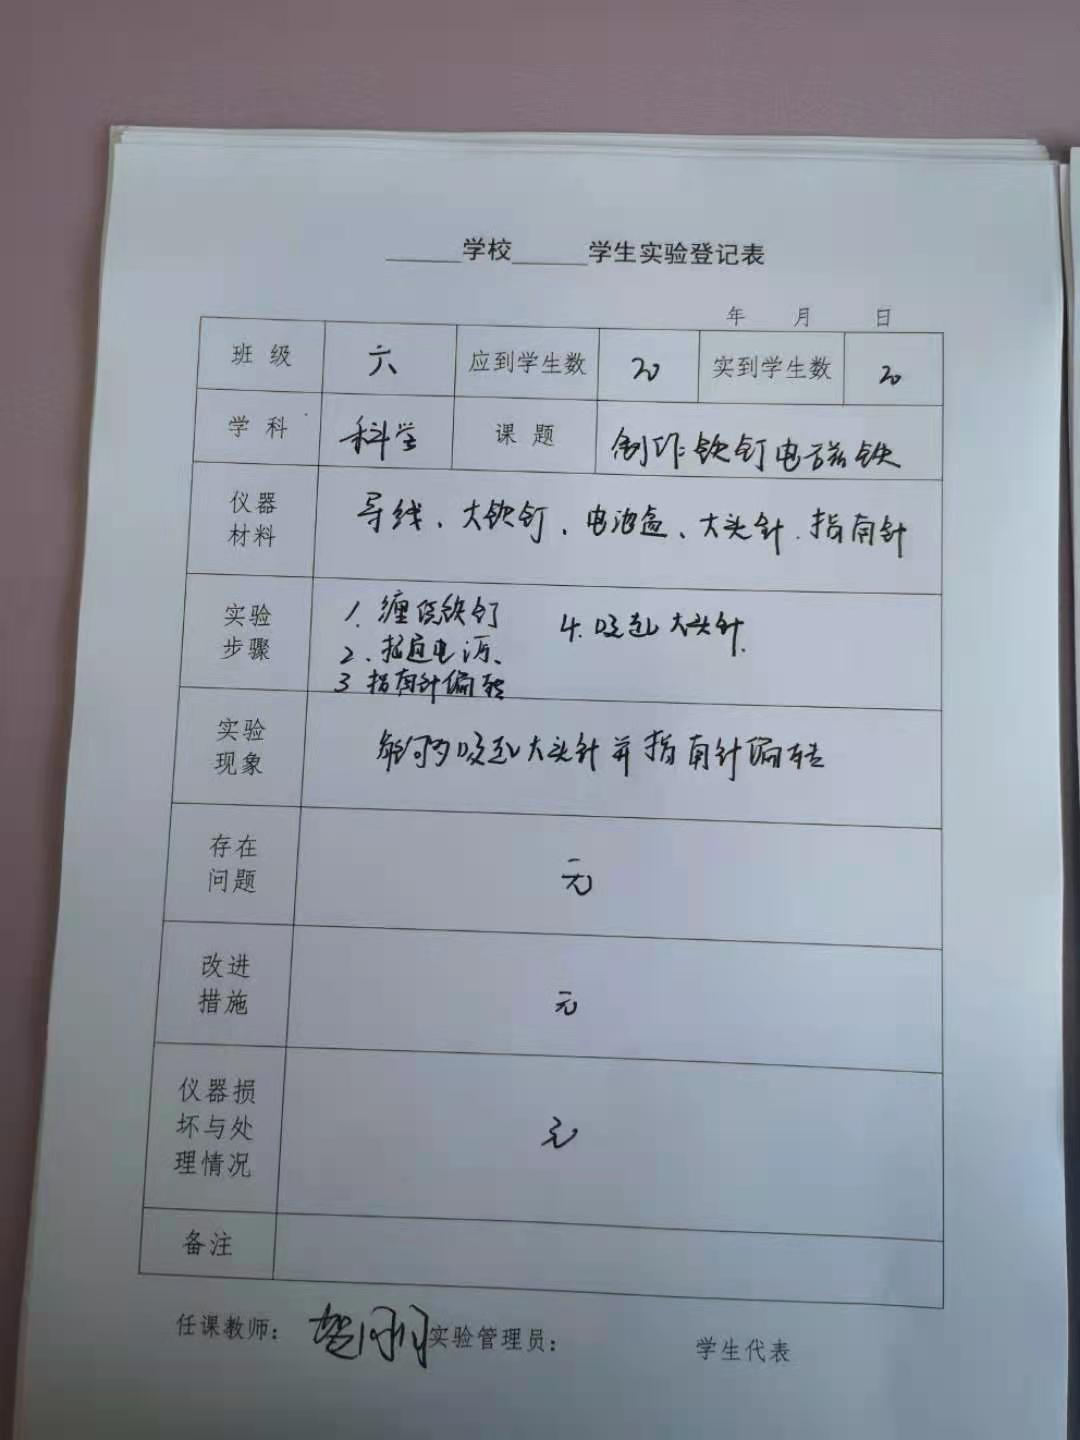 ______学校______学生实验登记表
年 月 日
班 级 六 应到学生数 20 实到学生数 20
学 科 科学 课 题 制作铁钉电磁铁
仪器材料 导线、大铁钉、电池盒、大头针.指南针
实验步骤 1.缠绕铁钉 4.吸起大头针.
2.接通电源、
3 指南针偏转
实验现象 能够吸起大头针并指南针偏转
存在问题 无
改进措施 无
仪器损坏与处理情况 无
备注
任课教师: 实验管理员: 学生代表